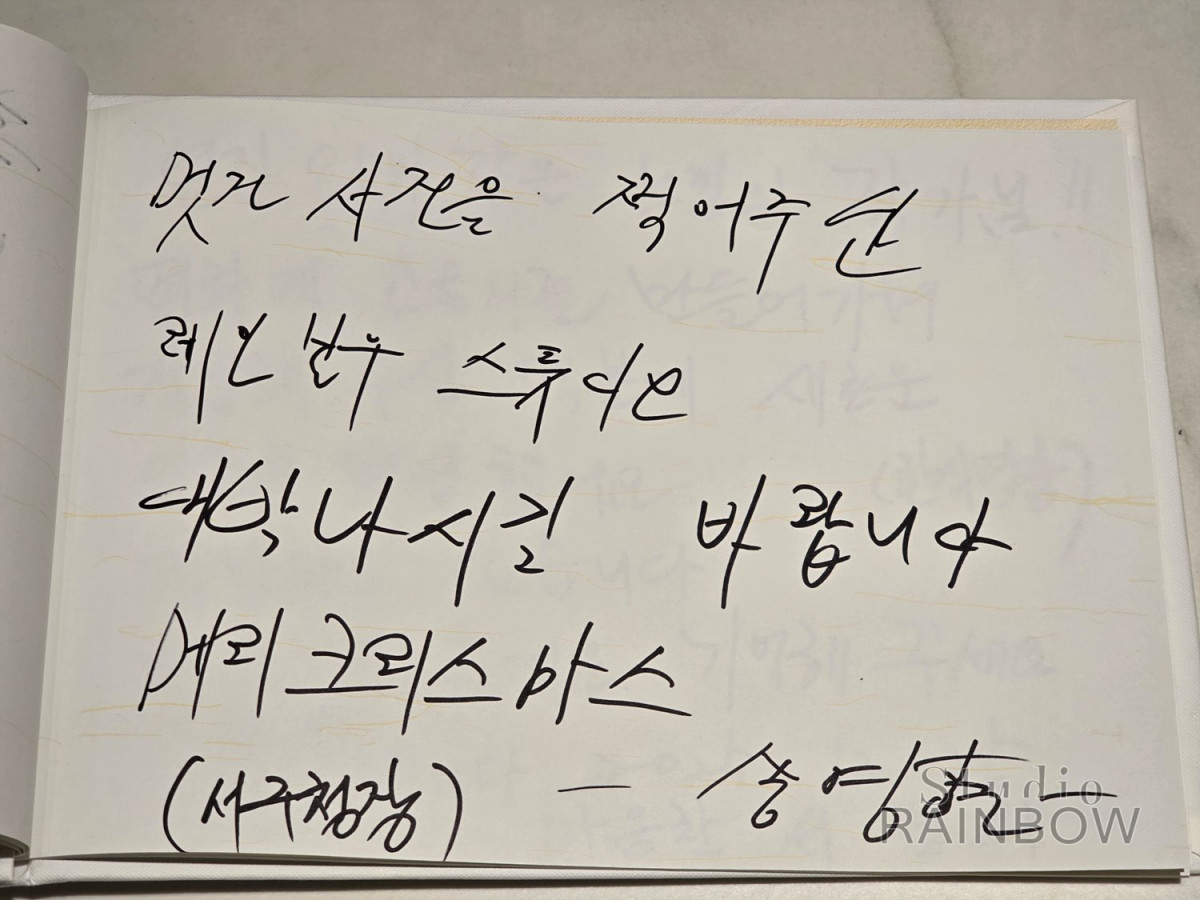 멋진 사진을 찍어주신
레인보우 스튜디오
대박나시길 바랍니다
메리크리스마스
(서구청장) — 송영
Studio
RAINBOW